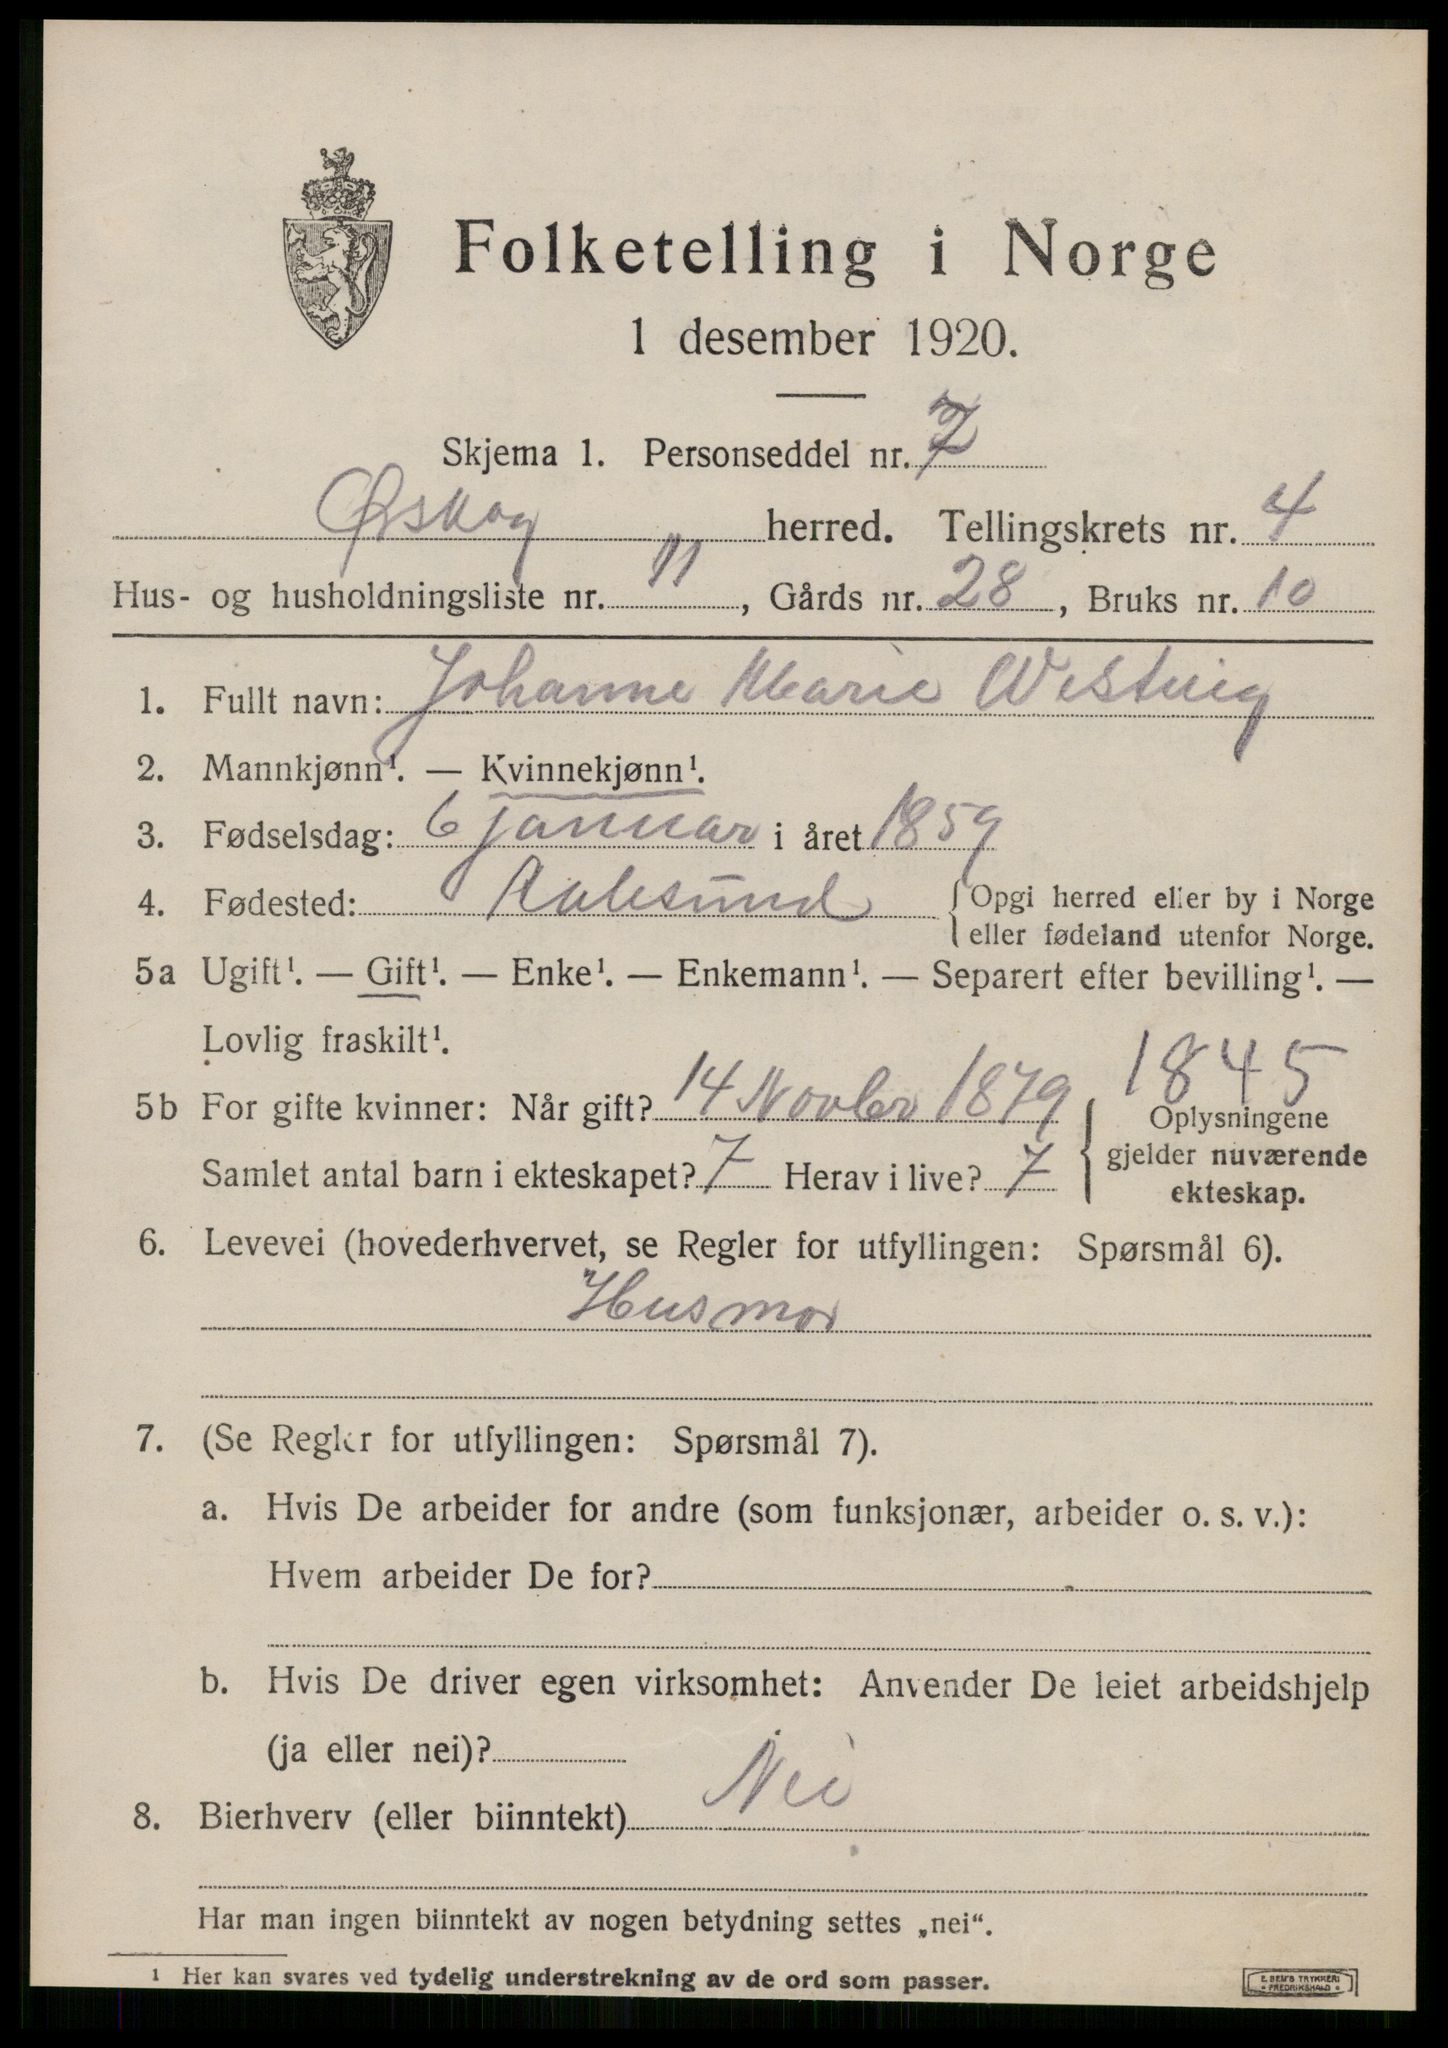 Folketelling i Norge
1 desember 1920.
Skjema 1. Personseddel nr.
Ørskog herred. Tellingskrets nr. 4
Hus- og husholdningsliste nr. 11, Gårds nr. 28, Bruks nr. 10
1. Fullt navn: Johanne Marie
2. Mannkjønn¹. — Kvinnekjønn¹.
3. Fødselsdag: 6 januar i året 1859
4. Fødested: Aalesund { Opgi herred eller by i Norge
eller fødeland utenfor Norge.
5a Ugift¹. — Gift¹. — Enke¹. — Enkemann¹. — Separert efter bevilling¹. —
Lovlig fraskilt¹.
1845
5b For gifte kvinner: Når gift? 14 Novbr 1879 { Oplysningene
gjelder nuværende
Samlet antal barn i ekteskapet? 7 Herav i live? 7
ekteskap.
6. Levevei (hovederhvervet, se Regler for utfyllingen: Spørsmål 6).
Husmor
7. (Se Regler for utfyllingen: Spørsmål 7).
a. Hvis De arbeider for andre (som funksjonær, arbeider o. s. v.):
Hvem arbeider De for?
b. Hvis De driver egen virksomhet: Anvender De leiet arbeidshjelp
(ja eller nei)?
8. Bierhverv (eller biinntekt) Nei
Har man ingen biinntekt av nogen betydning settes „nei“.
¹ Her kan svares ved tydelig understrekning av de ord som passer.
E. SEM'S TRYKKERI
• FREDRIKSHALD •